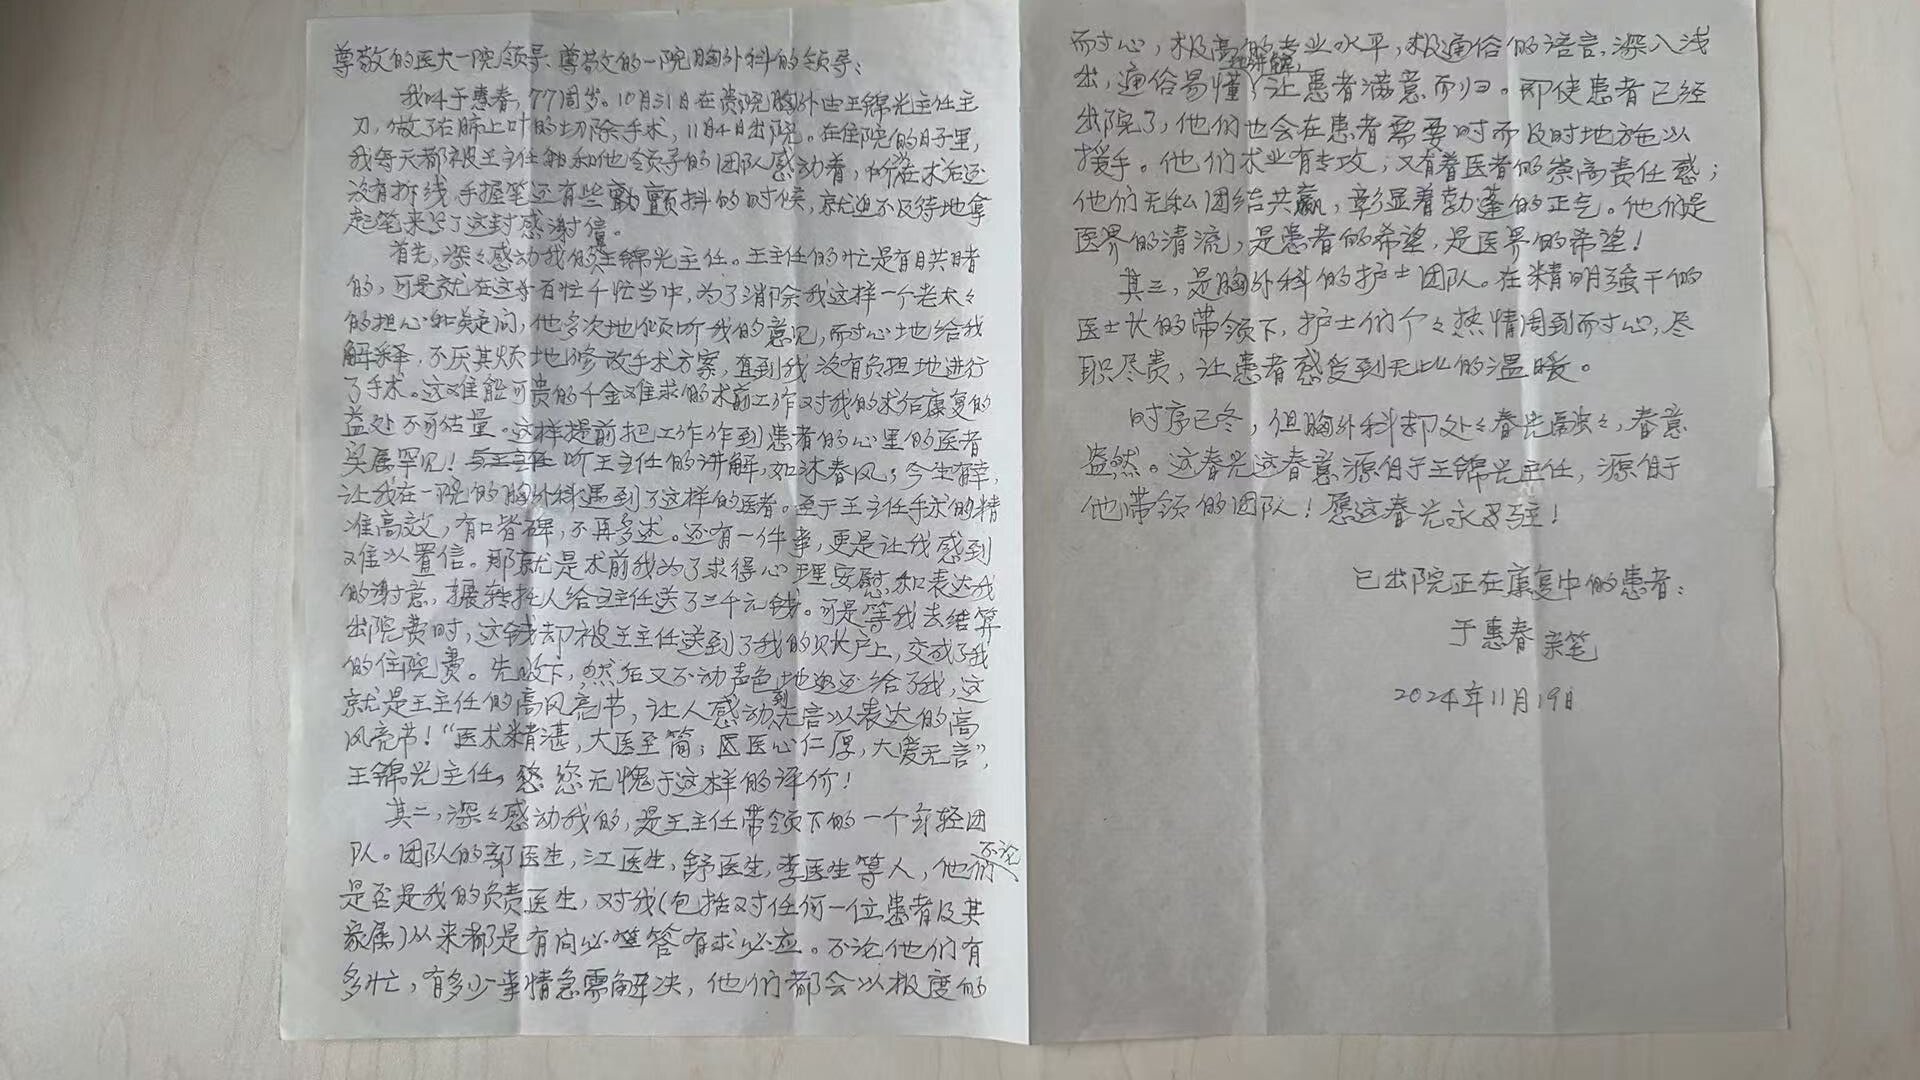 尊敬的医大一院领导、尊敬的一院胸外科的领导:
我叫于惠春,77周岁。10月31日在贵院胸外由王锦光主任主
刀,做了右肺上叶的切除手术,11月4日出院。在住院的日子里,
我每天都被王主任和他领导的团队感动着,所以在术后还
没有拆线,手握笔还有些颤抖的时候,就迫不及待地拿
起笔来写了这封感谢信。
首先,深々感动我的是王锦光主任。王主任的忙是有目共睹
的,可是就在这百忙千忙当中,为了消除我这样一个老太々
的担心和疑问,他多次地倾听我的意见,耐心地给我
解释,不厌其烦地修改手术方案,直到我没有负担地进行
了手术。这难能可贵的千金难求的术前工作对我的术后康复的
益处不可估量。这样提前把工作作到患者的心里的医者
实属罕见!听王主任的讲解,如沐春风;今生有幸,
让我在一院的胸外科遇到了这样的医者。至于王主任手术的精
准高效,有口皆碑,不再多述。还有一件事,更是让我感到
难以置信。那就是术前我为了求得心理安慰和表达我
的谢意,辗转托人给王主任送了三千元钱。可是等我去结算
出院费时,这钱却被王主任送到了我的账户上,变成了我
的住院费。先收下,然后又不动声色地退还给了我,这
就是王主任的高风亮节,让人感动到无言以表达的高
风亮节!“医术精湛,大医至简;医心仁厚,大爱无言”,
王锦光主任,您无愧于这样的评价!
其二,深々感动我的,是王主任带领下的一个年轻团
队。团队的郭医生,江医生,舒医生,李医生等人,他们不论
是否是我的负责医生,对我(包括对任何一位患者及其
家属)从来都是有问必答有求必应。不论他们有
多忙,有多少事情急需解决,他们都会以极度的
耐心,极高的专业水平,极通俗的语言,深入浅
出,通俗易懂的讲解,让患者满意而归。即使患者已经
出院了,他们也会在患者需要时而及时地施以
援手。他们术业有专攻;又有着医者的崇高责任感;
他们无私团结共赢,彰显着勃蓬的正气。他们是
医界的清流,是患者的希望,是医界的希望!
其三,是胸外科的护士团队。在精明强干的
医士长的带领下,护士们个々热情周到耐心,尽
职尽责,让患者感受到无比的温暖。
时序已冬,但胸外科却处々春光融々,春意
盎然。这春光这春意源自于王锦光主任,源自于
他带领的团队!愿这春光永驻!
已出院正在康复中的患者:
于惠春亲笔
2024年11月19日